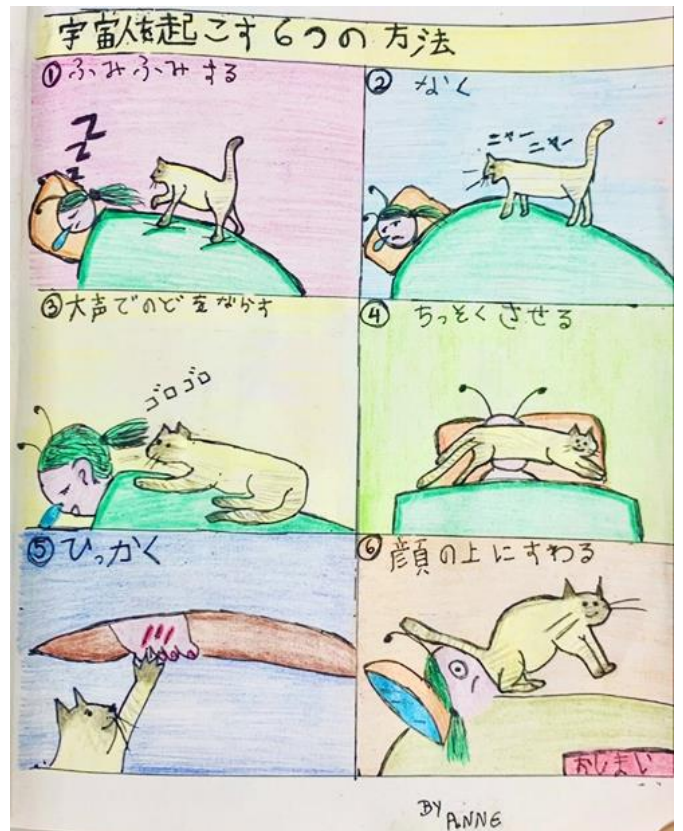 宇宙人を起こす6つの方法
①ふみふみする
ZZZ
②なく
ニャー ニャー
③大声でのどをならす
ゴロゴロ
④ちっそくさせる
⑤ひっかく
⑥顔の上にすわる
おしまい
BY ANNE